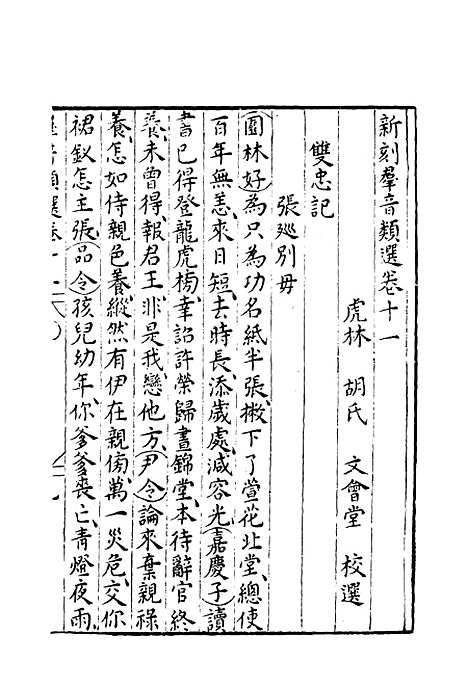 新刻羣音類選卷十一
虎林 胡氏 文會堂 校選
雙忠記
張廵別母
(園林好)為只為功名紙半張、撇下了萱花北堂、總使
百年無恙、來日短、去時長、添歲處、減容光(嘉慶子)讀
書已得登龍虎榜、幸詔許榮歸晝錦堂、本待辭官終
養、未曾得、報君王、非是我、戀他方(尹令)論來棄親祿
養、怎如侍親色養、縱然有伊在親傍、萬一災危、交你
裙釵怎主張(品令)孩兒幼年、你爹爹喪亡、青燈夜雨、